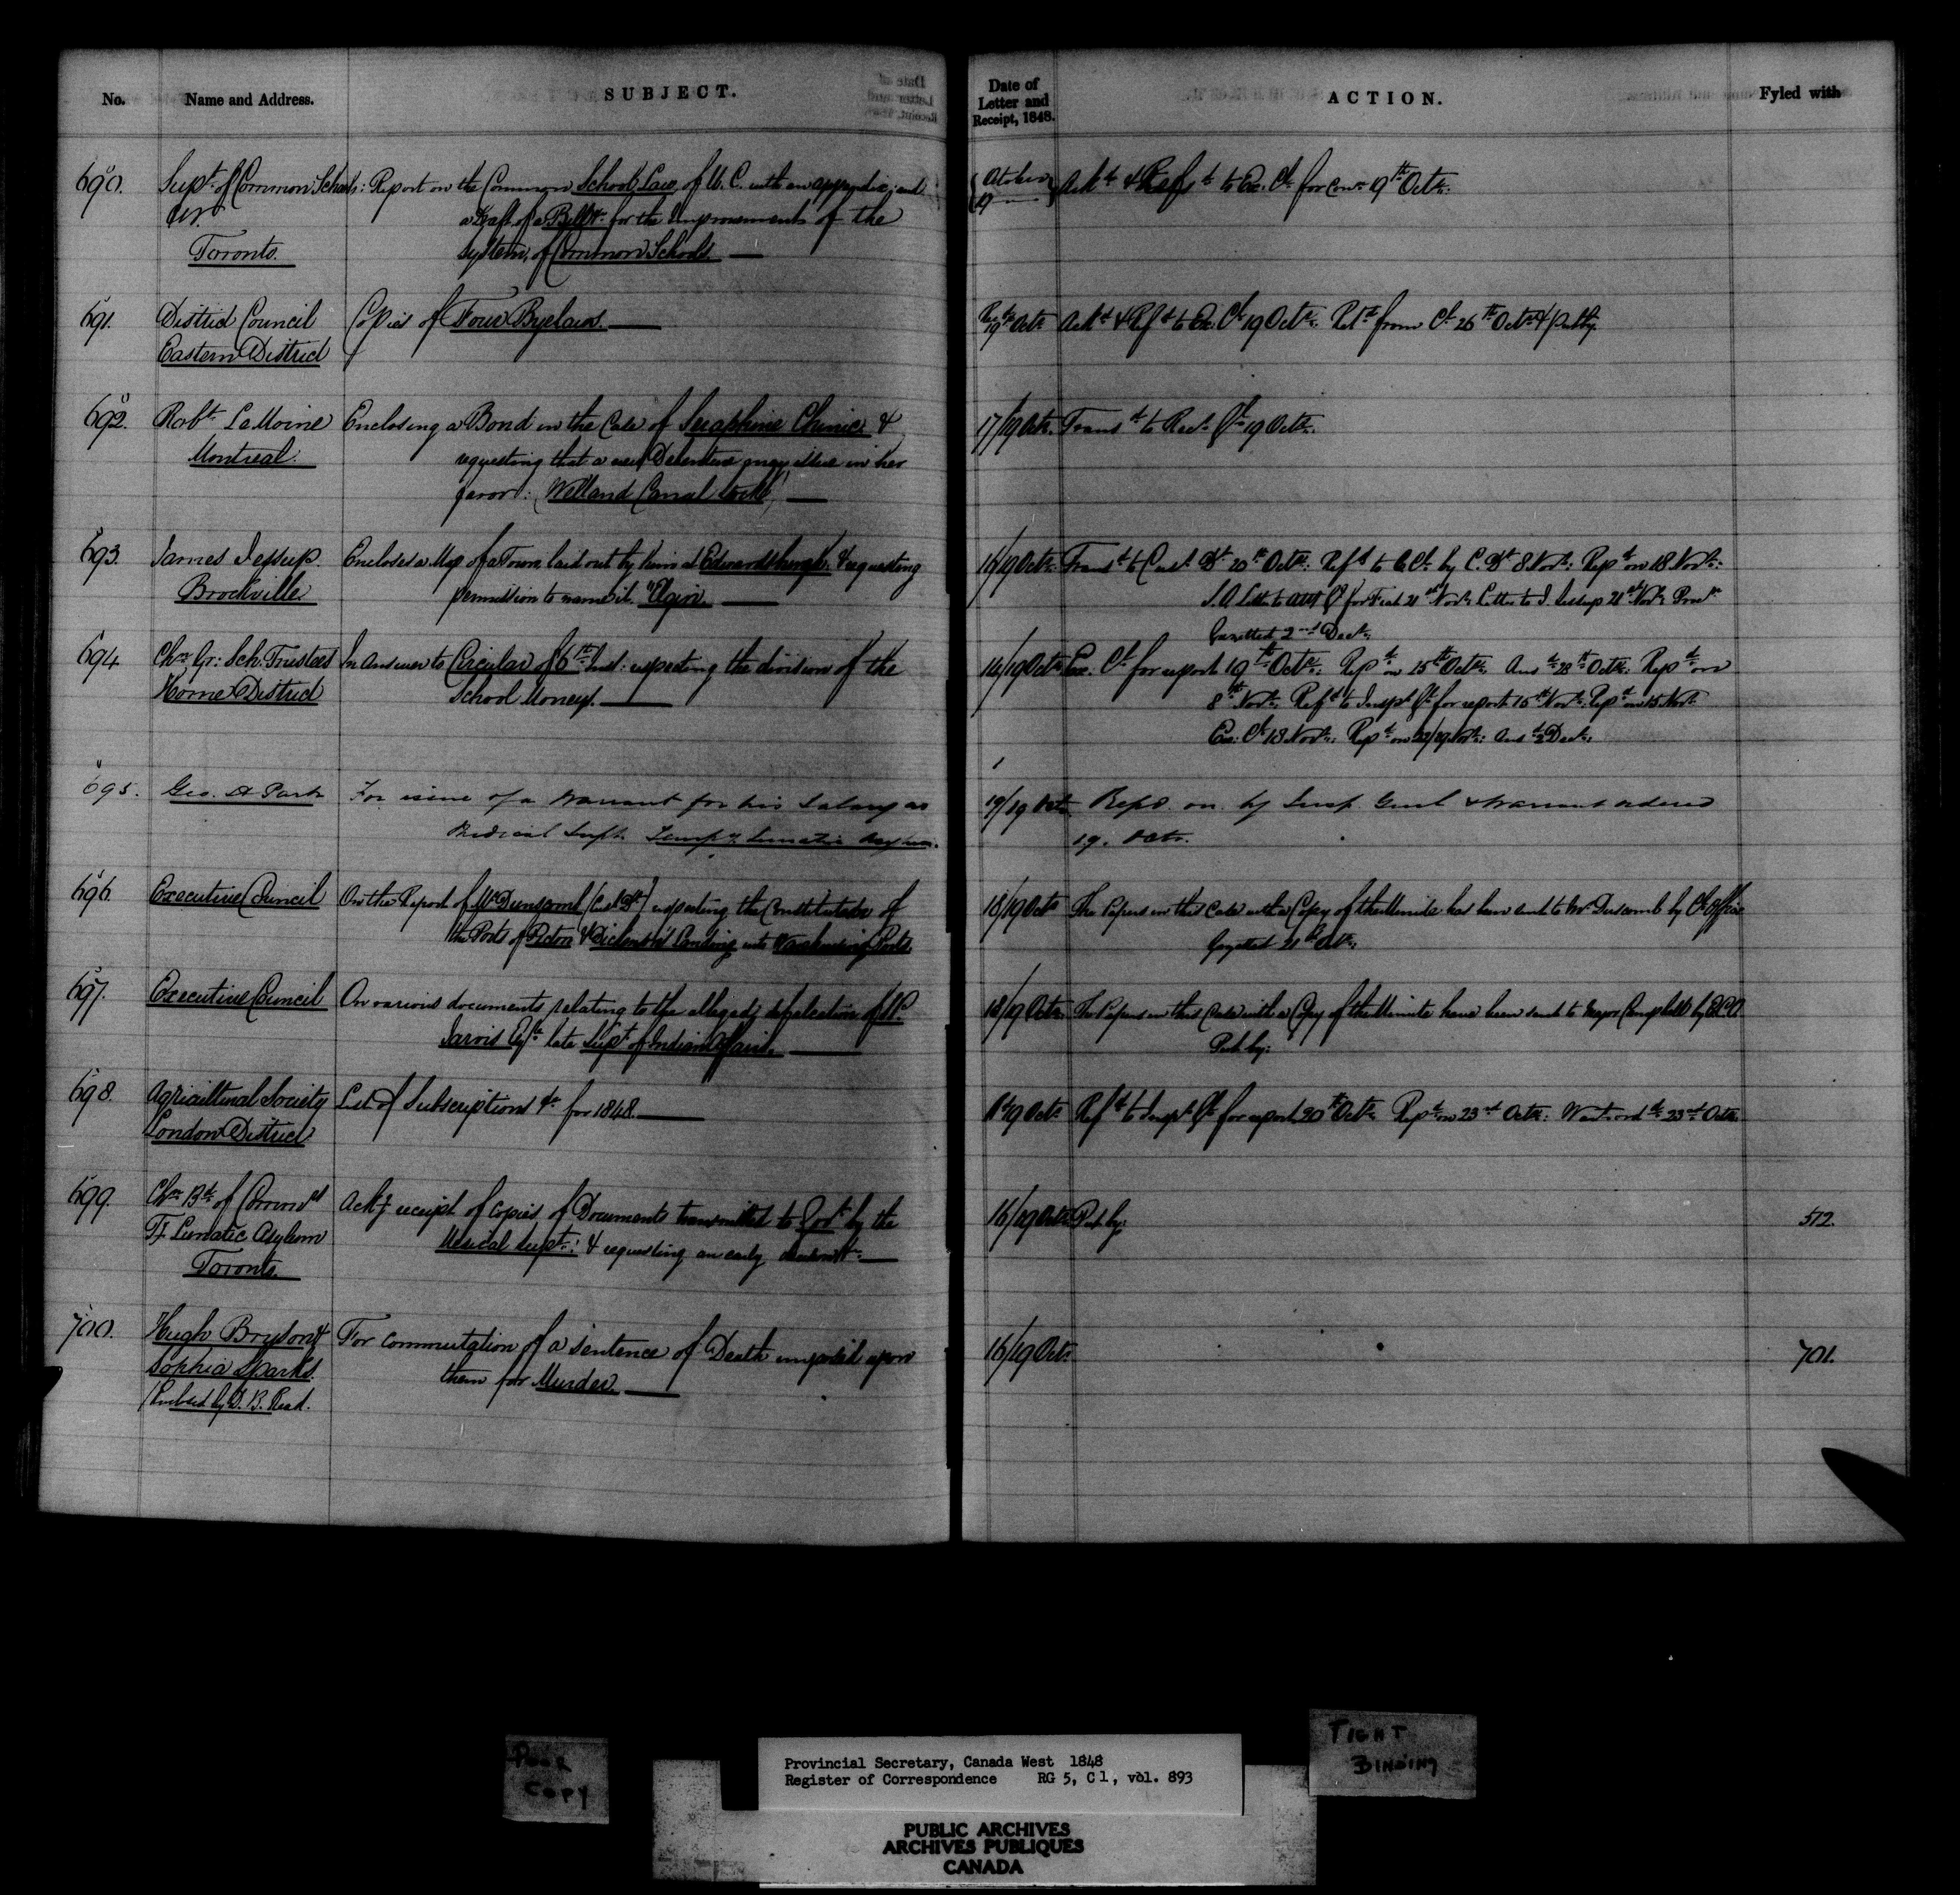 No.
Name and Address.
SUBJECT.
Date of
Letter and
Receipt, 1848.
ACTION.
Fyled with
690.
Supt. of Common Schools:
Toronto.
Report on the Common School Law of U. C. with an appendix, and
a Draft of a Bill &c for the Improvement of the
system, of Common Schools.
October
19
Ackd & Refd to Ex. Cl. for Con. 19th Octr.
691.
District Council
Eastern District
Copies of Four Byelaws.
19th Octr
Ackd & Refd to Ex. Cl 19 Octr. Retd from Cl. 26th Octr & put by.
692.
Robt LeMoine
Montreal.
Enclosing a Bond in the Case of Seraphine Chinic &
requesting that a new Debenture may issue in her
favor: (Welland Canal Stock)
17/19 Octr.
Transd to Recr Gl 19 Octr.
693.
James Jessup.
Brockville
Encloses a Map of a Town laid out by him at Edwardsburgh, & requesting
permission to name it. "Elgin.
16/19 Octr.
Transd to Cusl Dt 20th Octr: Refd to E. Cl. by C. Dt 8 Novr: Repd on 18 Novr:
Letter to J. Jessup 21st Novr
Gazetted 2nd Decr.
694
Chn Gr: Sch. Trustees
Home District
In Answer to Circular of 6th Inst: respecting the division of the
School Moneys.
16/19 Octr
Exe. Cl. for report 19th Octr: Repd on 25th Octr. Ansd 28th Octr: Repd on
8th Novr. Refd to Inspr Gl for report 15th Novr. Repd on 15 Novr
Ex: Cl. 18 Novr: Repd on 22/29 Novr: Ansd 2 Decr.
695.
Geo. H Park
For issue of a Warrant for his Salary as
Medical Supt. Tempy Lunatic Asylum.
19/19 Octr
Repd. on. by Insp. Genl & Warrant ordered
19. Octr.
696.
Executive Council
On the Report of Mr Dunscomb (Cusl Dt) respecting the Constitution of
the Ports of Picton & Dickenson's Landing into Warehousing Ports
18/19 Octr
The Papers in this Case with a Copy of the Minute has been sent to Mr Duscomb by Cl Office
Gazetted 21st Octr.
697.
Executive Council
On various documents relating to the alleged defalcation of S. P.
Jarvis Esqr late Supt of Indian Affairs.
18/19 Octr.
The Papers in this Case with a Copy of the Minute have been sent to Major Campbell by E.C.O
Put by:
698.
Agricultural Society
London District
List of Subscriptions &c for 1848.
19 Octr
Refd to Inspr Gl for report 20th Octr. Repd on 23rd Octr: Wart ordd 23rd Octr.
699.
Chn Bd of Commrs
Ty. Lunatic Asylum
Toronto.
Ackg receipt of Copies of Documents transmitted to Govt by the
Medical Supt: & requesting an early
16/19 Octr
Put by:
512.
700.
Hugh Bryson &
Sophia Sparks.
(Enclosed by D. B. Read.
For commutation of a sentence of Death imposed upon
them for Murder.
16/19 Octr
701.
POOR
COPY
Provincial Secretary, Canada West 1848
Register of Correspondence RG 5, C 1, vol. 893
TIGHT
BINDING
PUBLIC ARCHIVES
ARCHIVES PUBLIQUES
CANADA